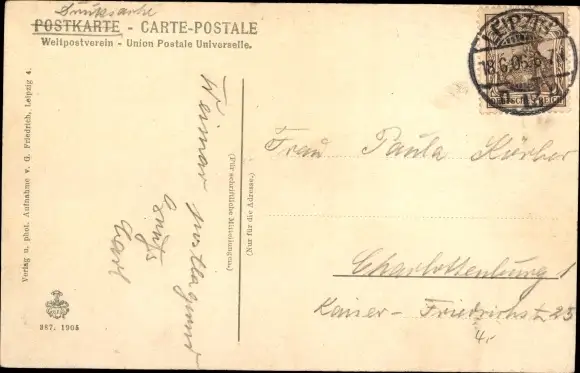 Drucksache
POSTKARTE - CARTE-POSTALE
Weltpostverein - Union Postale Universelle.
LEIPZIG
18.6.06.6-7N
DEUTSCHES REICH
Verlag u. phot. Aufnahme v. G. Friedrich, Leipzig 4.
387. 1905
Weimar postlagernd
Gruß
Carl
(Für schriftliche Mitteilungen.)
(Nur für die Adresse.)
Frau Paula Körber
Charlottenburg 1
Kaiser-Friedrichst 25